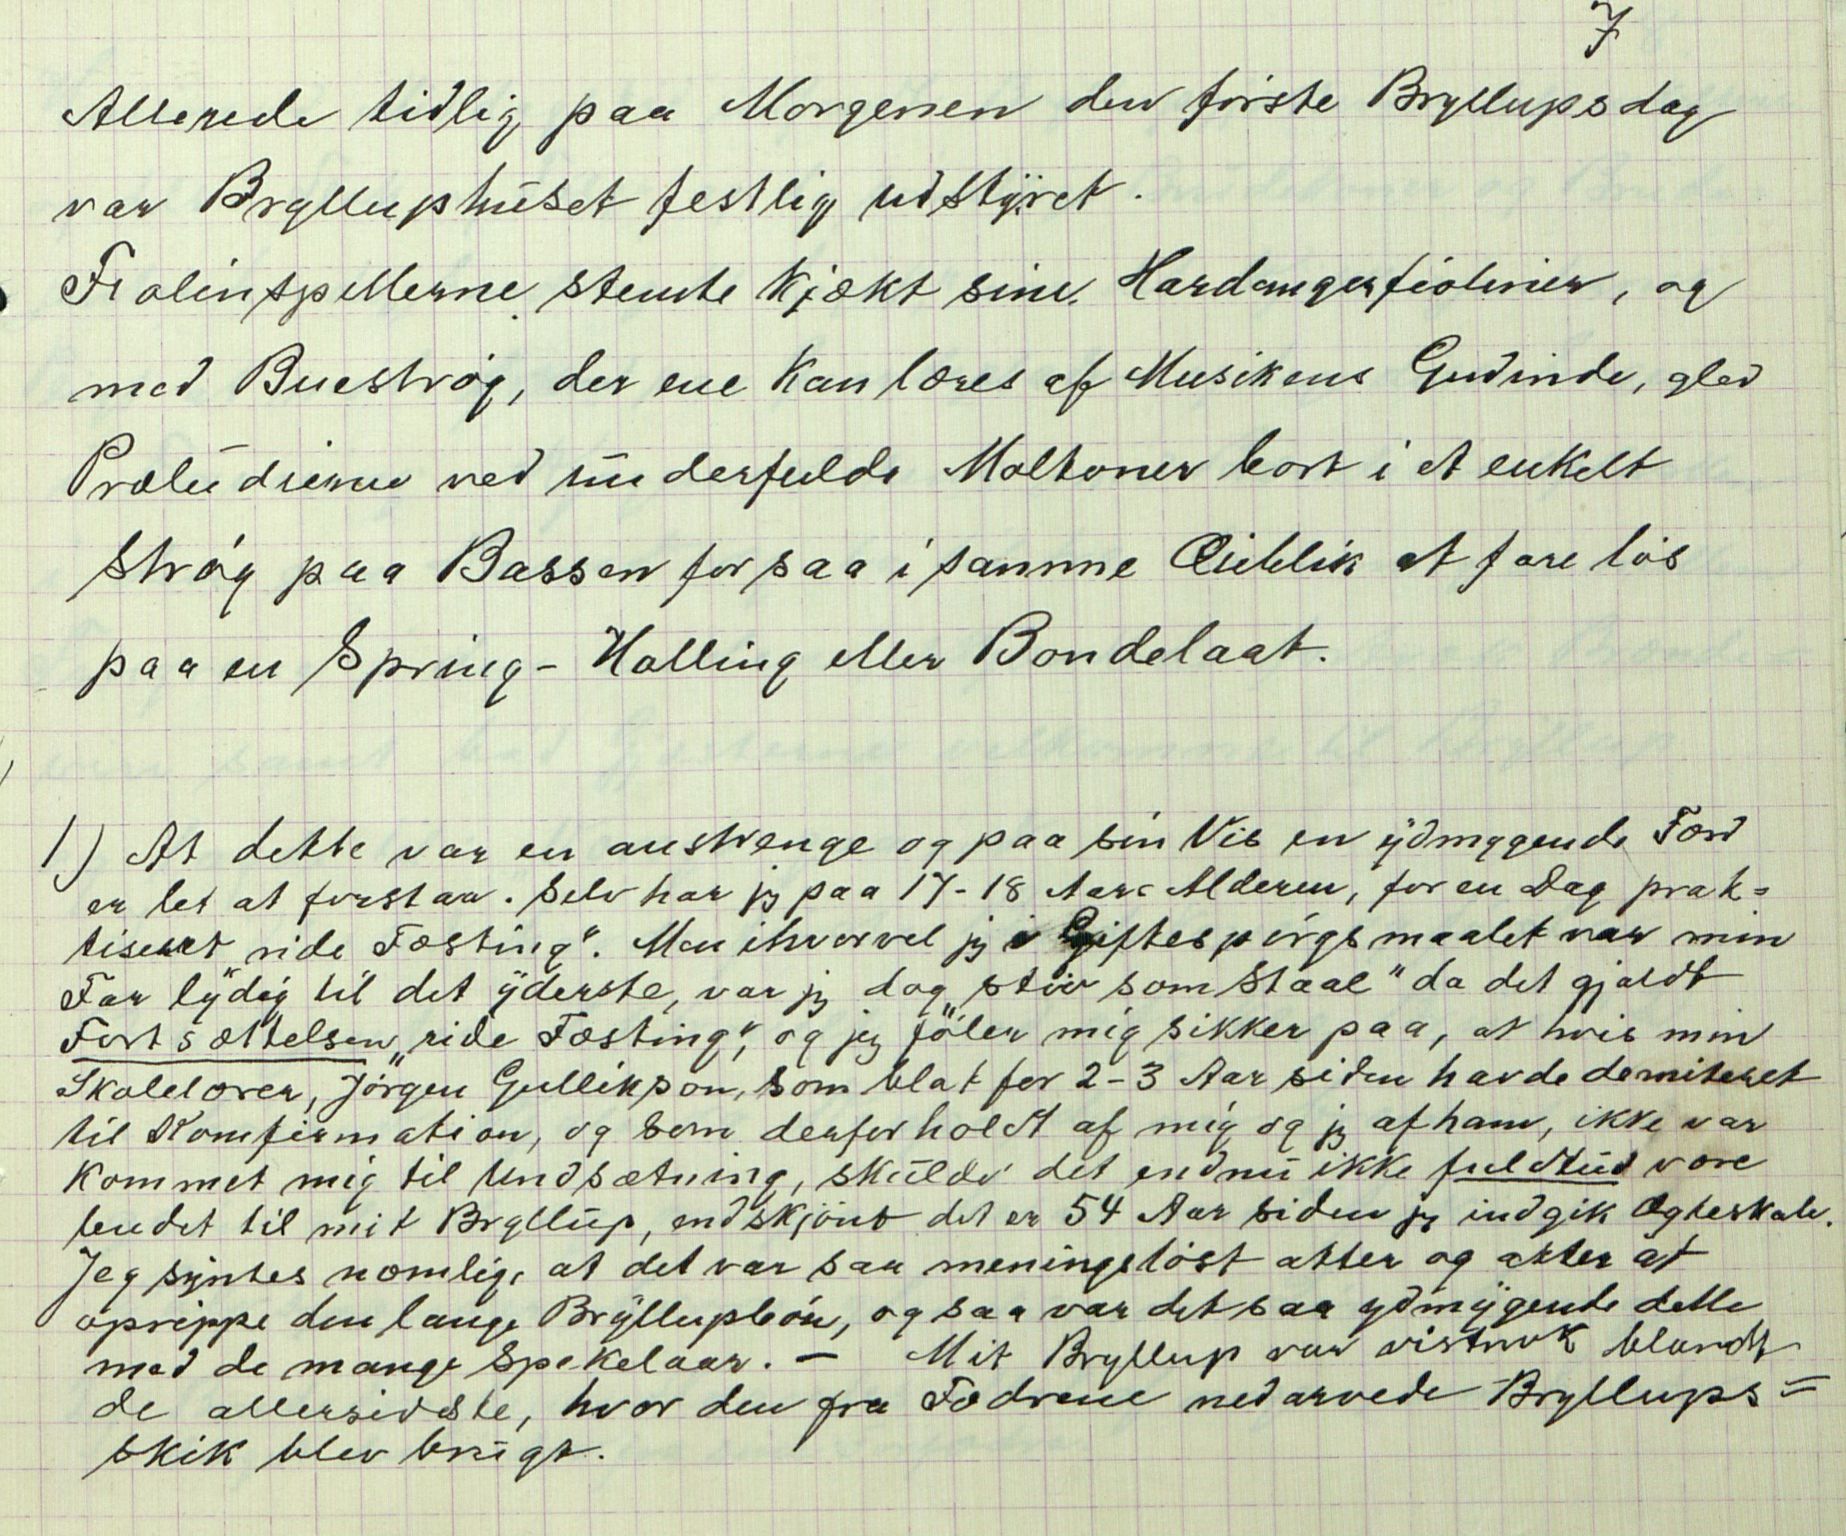 7
Allerede tidlig paa Morgenen den første Bryllupsdag
var Brylluphuset festlig udstyret.
Fiolinspillerne stemte kjækt sine Hardangerfioliner, og
med Buestrøg, der ene kan læres af Musikens Gudinde, gled
Præludierne ved underfulde Moltoner bort i et enkelt
Strøg paa Bassen for saa i samme Øieblik at fare løs
paa en Spring- Halling eller Bondelaat.
1) At dette var en anstrenge og paa sin Vis en ydmygende Færd
er let at forstaa. Selv har jeg paa 17-18 Aars Alderen, for en Dag prak=
tiseret ride Fæsting". Men ihvorvel jeg i Giftespørgsmaalet var min
Far lydig til det yderste, var jeg dog "stiv som Staal" da det gjaldt
Fortsættelsen "ride Fæsting", og jeg føler mig sikker paa, at hvis min
Skolelærer, Jørgen Gullikson, som blot for 2-3 Aar siden havde demiteret
til Konfirmation, og som derfor holdt af mig og jeg af ham, ikke var
kommet mig til Undsætning, skulde det endnu ikke fuldtud være
budet til mit Bryllup, endskjønt det er 54 Aar siden jeg indgik Ægteskab.
Jeg syntes næmlig, at det var saa meningsløst atter og atter at
oprippe den lange Bryllupbøn, og saa var det saa ydmygende dette
med de mange Spekelaar. — Mit Bryllup var vistnok blandt
de allersidste, hvor den fra Fædrene nedarvede Bryllups=
skik blev brugt.